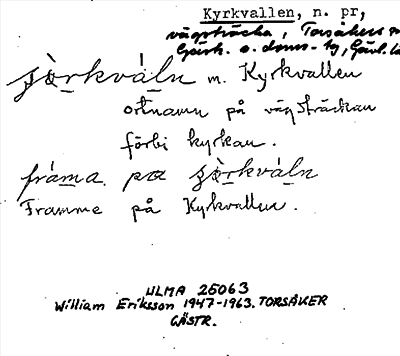 Kyrkvallen, n. pr,
vägsträcka, Torsåkers
Gästr. o. doms-
m. Kyrkvallen
ortnamn på vägsträckan
förbi kyrkan.
fráma pɑ
Framme på Kyrkvallen.
ULMA 25063
William Eriksson 1947-1963. TORSÅKER
GÄSTR.